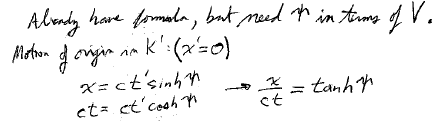 Already have formula, but need ψ in terms of V.
Motion of origin in K': (x'=0)
x = ct' sinh ψ → x/ct = tanh ψ
ct = ct' cosh ψ